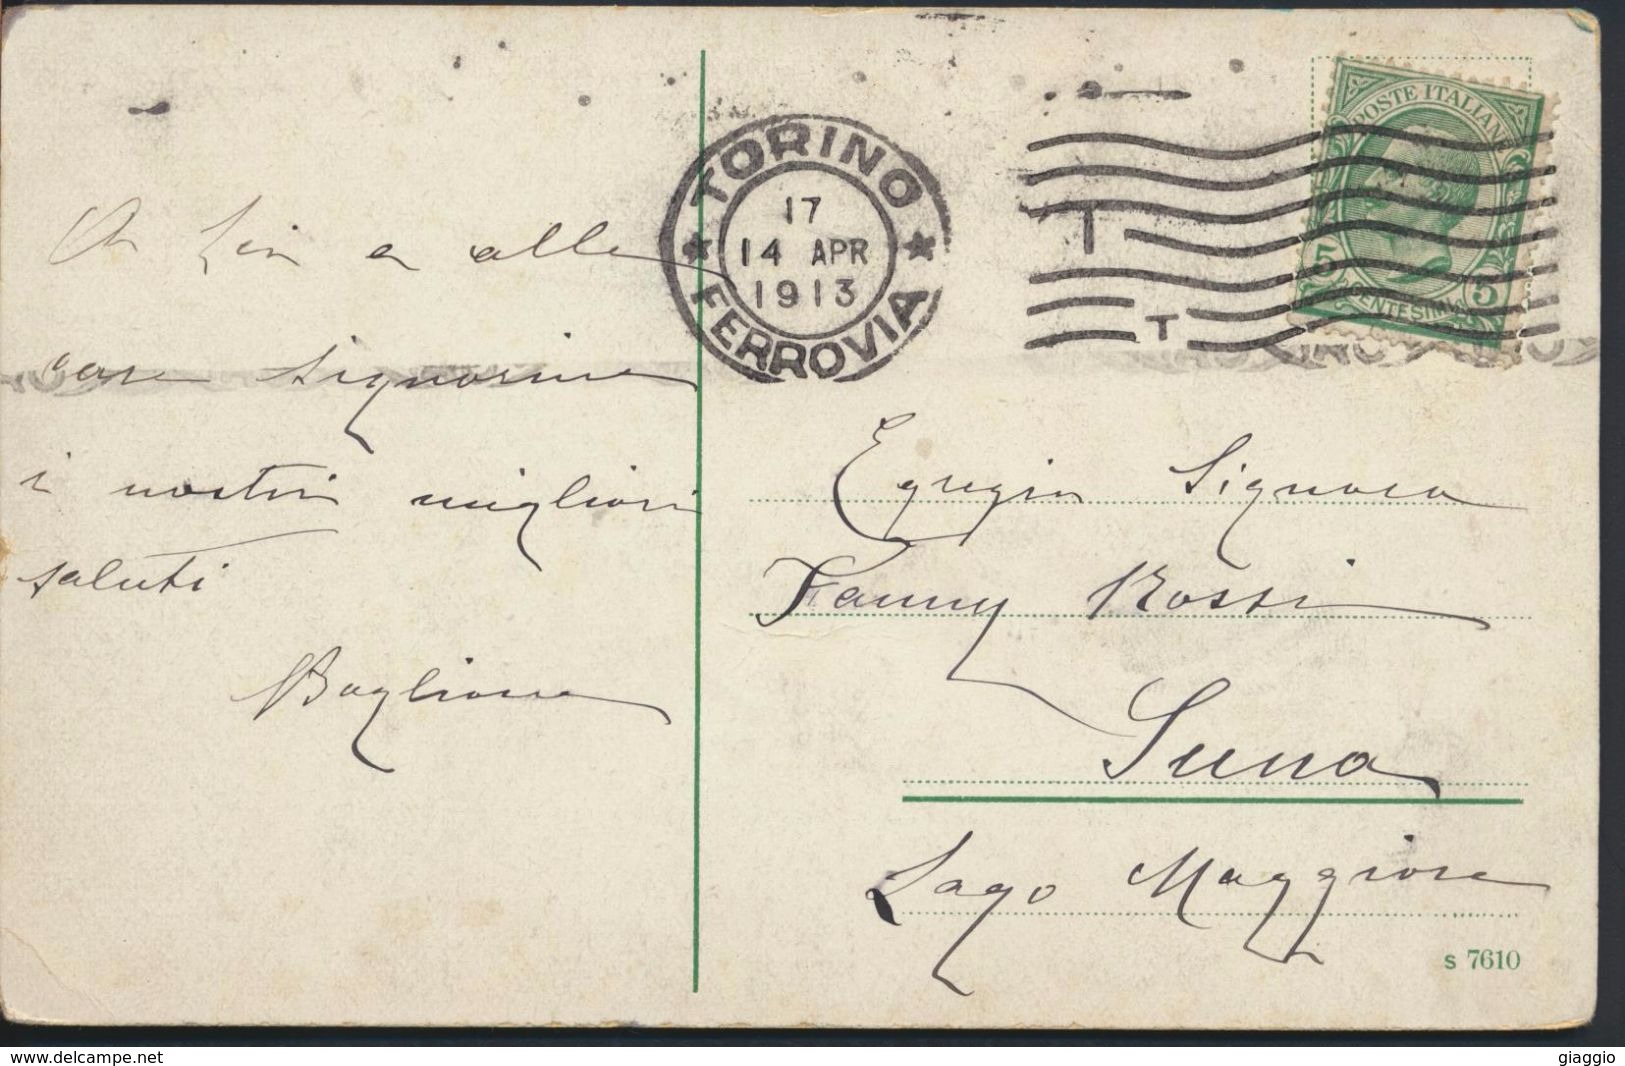 A Lei e alle
care signorine
i nostri migliori
saluti
Baglione
TORINO
17
14 APR
1913
FERROVIA
T
T
POSTE ITALIANE
5 CENTESIMI 5
Egregia Signora
Fanny Rossi
Suna
Lago Maggiore
S 7610
www.delcampe.net
giaggio